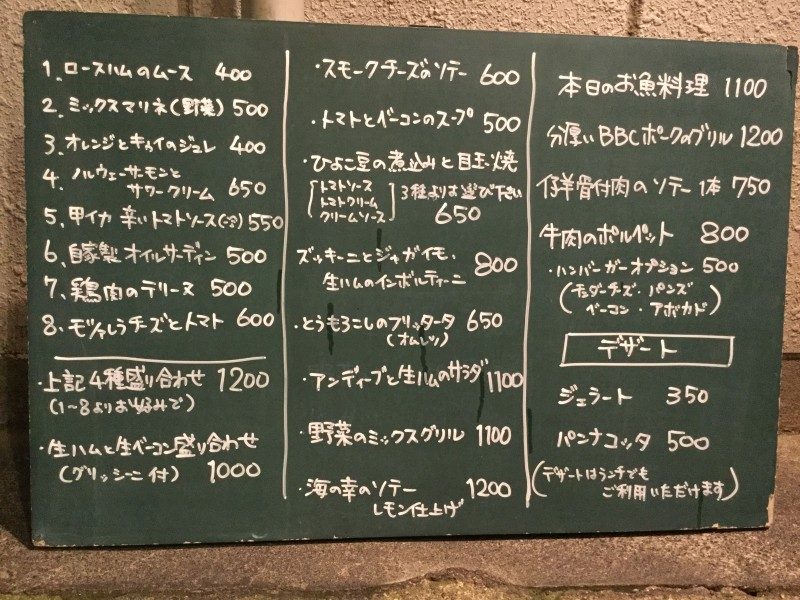 1. ロースハムのムース 400
2. ミックスマリネ(野菜) 500
3. オレンジとキゥイのジュレ 400
4. ノルウェーサーモンと
サワークリーム 650
5. 甲イカ 辛いトマトソース 550
6. 自家製 オイルサーディン 500
7. 鶏肉のテリーヌ 500
8. モツァレラチーズとトマト 600
・上記4種盛り合わせ 1200
(1~8よりお好みで)
・生ハムと生ベーコン盛り合わせ
(グリッシーニ付) 1000
・スモークチーズのソテー 600
・トマトとベーコンのスープ 500
・ひよこ豆の煮込みと目玉焼
トマトソース
トマトクリーム
クリームソース
3種よりお選び下さい
650
ズッキーニとジャガイモ、
生ハムのインボルティーニ 800
・とうもろこしのフリッタータ 650
(オムレツ)
・アンディーブと生ハムのサラダ 1100
・野菜のミックスグリル 1100
・海の幸のソテー 1200
レモン仕上げ
本日のお魚料理 1100
分厚いBBCポークのグリル 1200
仔羊骨付肉のソテー 1本 750
牛肉のポルペット 800
・ハンバーガーオプション 500
(チェダーチーズ・バンズ
ベーコン・アボカド)
デザート
ジェラート 350
パンナコッタ 500
(デザートはランチでも
ご利用いただけます)